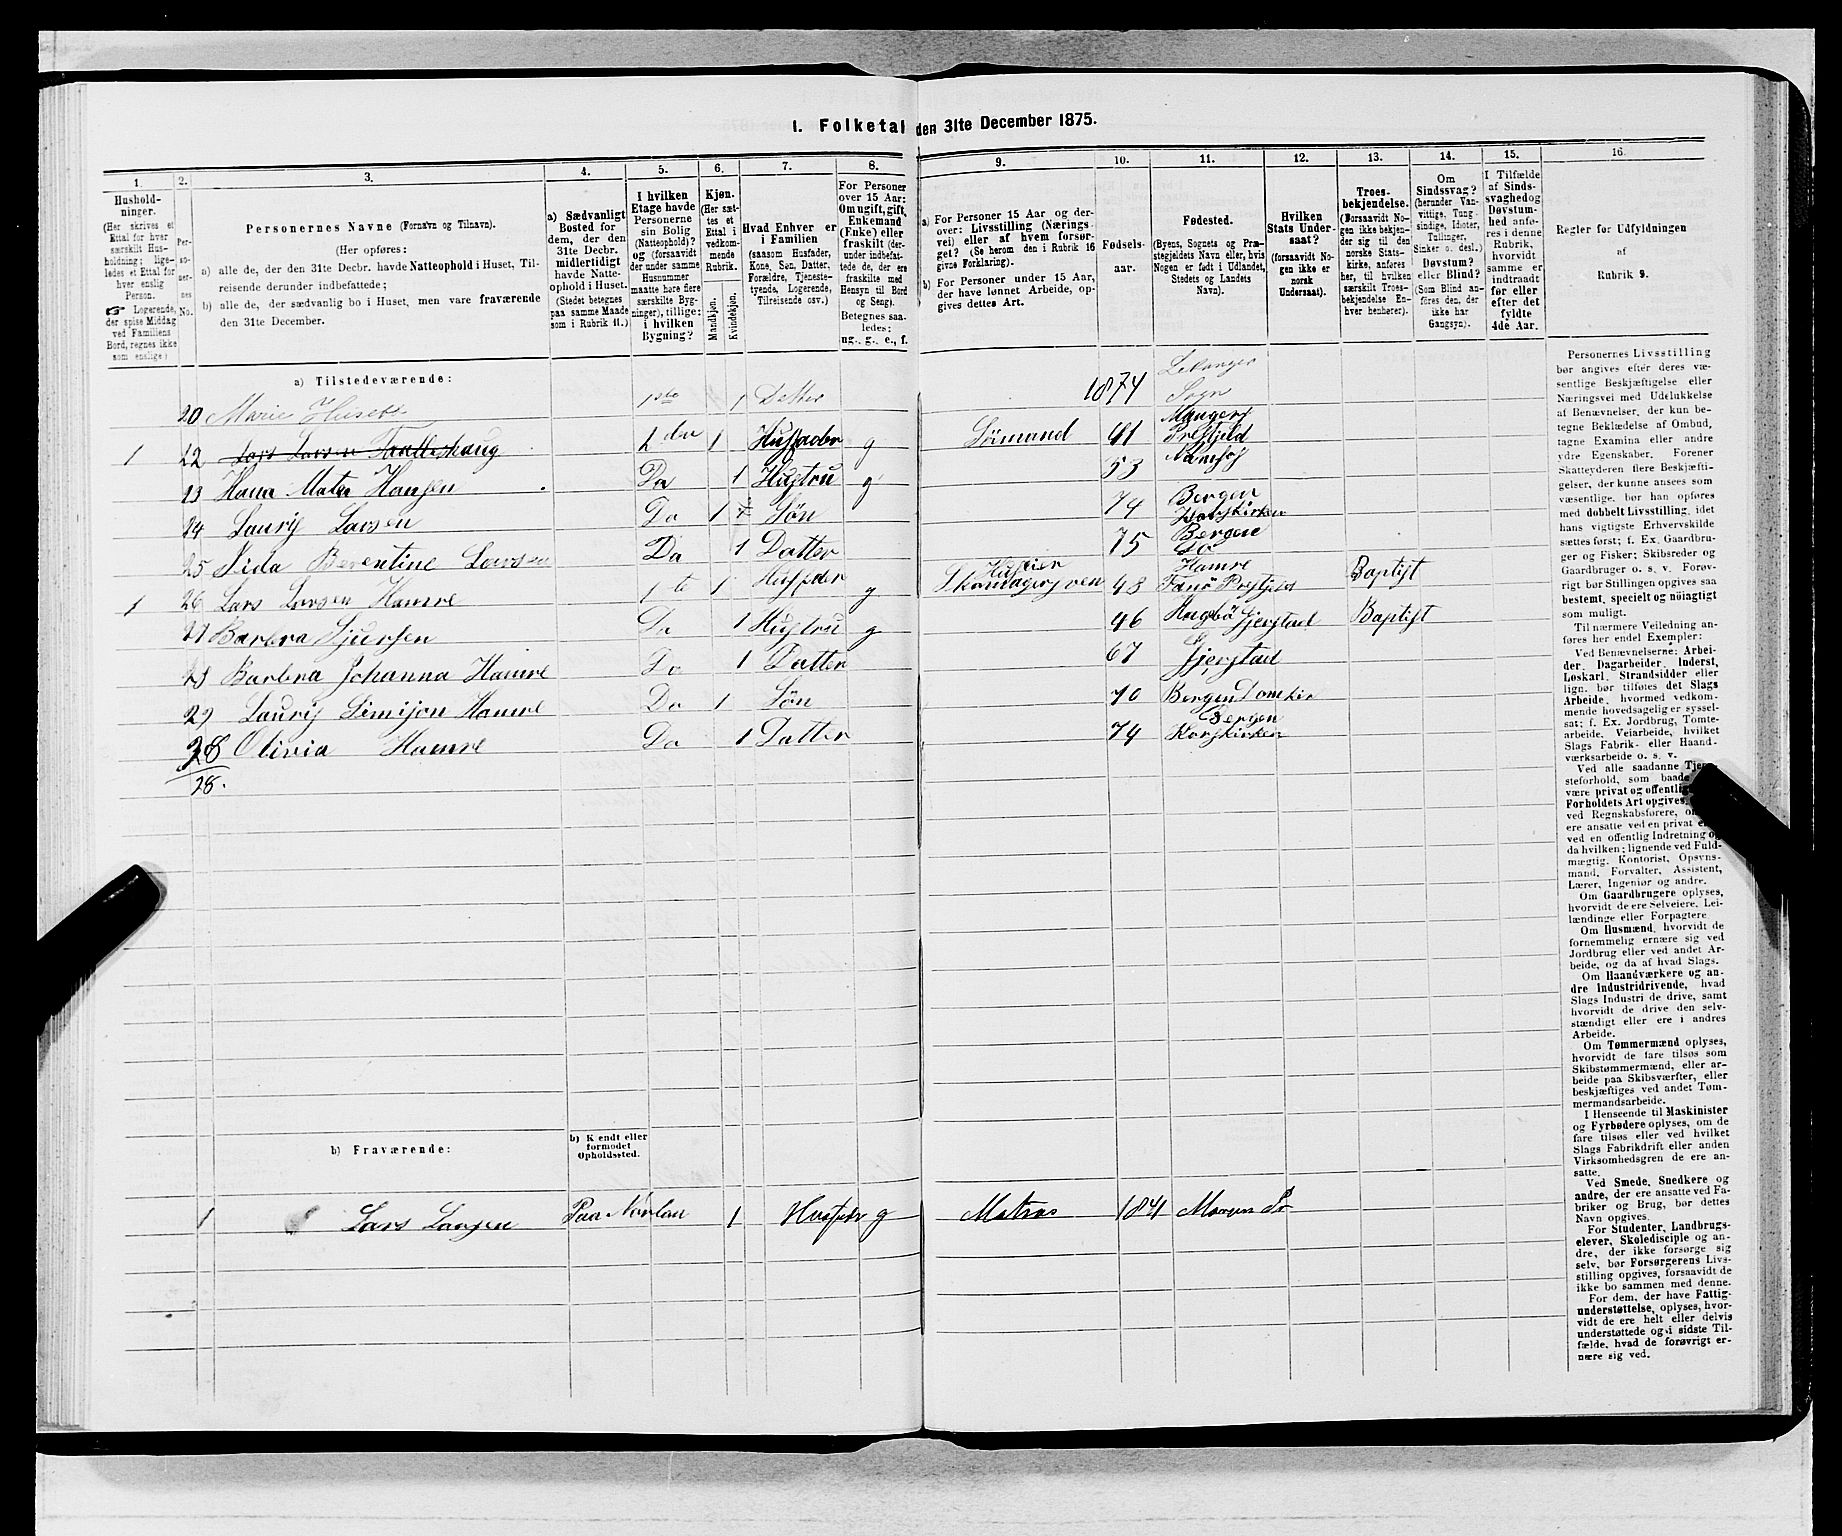 I. Folketal den 31te December 1875.
1. 2. 3. 4. 5. 6. 7. 8. 9. 10. 11. 12. 13. 14. 15. 16.
Husholdninger.
(Her skrives et Ettal for hver særskilt Husholdning; ligeledes et Ettal for hver enslig Person.
☞ Logerende, der spise Middag ved Familiens Bord, regnes ikke som enslige)
Personernes No.
Personernes Navne (Fornavn og Tilnavn).
(Her opføres:
a) alle de, der den 31te Decbr. havde Natteophold i Huset, Tilreisende derunder indbefattede;
b) alle de, der sædvanlig bo i Huset, men vare fraværende den 31te December.
a) Sædvanligt Bosted for dem, der den 31te Decbr. midlertidigt havde Natteophold i Huset.
(Stedet betegnes paa samme Maade som i Rubrik 11.)
I hvilken Etage havde Personerne sin Bolig (Natteophold)? og (forsaavidt der under samme Husnummer maatte høre flere særskilte Bygninger), tillige: i hvilken Bygning?
Kjøn.
(Her sættes et Ettal i vedkommende Rubrik.
Mandkjøn.
Kvindekjøn.
Hvad Enhver er i Familien
(saasom Husfader, Kone, Søn, Datter, Forældre, Tjenestetyende, Logerende, Tilreisende osv.)
For Personer over 15 Aar: Om ugift, gift, Enkemand (Enke) eller fraskilt (derunder indbefattede de, der ere fraskilte med Hensyn til Bord og Seng).
Betegnes saaledes:
ug., g., e., f.
a) For Personer 15 Aar og derover: Livsstilling (Næringsvei) eller af hvem forsørget? (Se herom den i Rubrik 16 givne Forklaring).
b) For Personer under 15 Aar, der have lønnet Arbeide, opgives dettes Art.
Fødselsaar.
Fødested.
(Byens, Sognets og Præstegjeldets Navn eller, hvis Nogen er født i Udlandet, Stedets og Landets Navn).
Hvilken Stats Undersaat?
(forsaavidt Nogen ikke er norsk Undersaat).
Troesbekjendelse.
(Forsaavidt Nogen ikke bekjender sig til den norske Statskirke, anføres her, til hvilken særskilt Troesbekjendelse Enhver henhører).
Om Sindssvag? (herunder Vanvittige, Tungsindige, Idioter, Tullinger, Sinker o. desl.) Døvstum? eller Blind? (Som Blind anføres den, der ikke har Gangsyn).
I Tilfælde af Sindssvaghed og Døvstumhed anføres i denne Rubrik, hvorvidt samme er indtraadt før eller efter det fyldte 4de Aar.
Regler for Udfyldningen
af
Rubrik 9.
a) Tilstedeværende:
20 Marie Huseb 1ste 1 Detter 1874 Lekanger Sogn
1 22 Lars Larsen Taulleskaug 2den 1 Husfader g Sömand 41 Manger Prestjeld
23 Hana Mater Hansen Do 1 Hustru g 53 Namsos
24 Laurij Larsen Do 1 Søn 74 Bergen Korskirken
25 Aida Berentine Larsen Do 1 Datter 75 Bergen Do
1 26 Lars Larsen Hamre 1te 1 Husfader g Huseier Skomagersven 48 Hamre Fanö Prestjeld Baptist
27 Barbra Sjursen Do 1 Hustru g 46 Haugbö Gjerstad Baptist
28 Barbra Johanna Hamre Do 1 Datter 67 Gjerstad
29 Laurij Simijon Hamre Do 1 Søn 70 Bergen Domkir
28 Olivia Hamre Do 1 Datter 74 Bergen Korskirken
28.
b) Fraværende:
b) Kjendt eller formodet Opholdssted.
1 Lars Larsen Paa Norlan 1 Husfader g Matros 1841 Manger P
Personernes Livsstilling
bør angives efter deres væ-
sentlige Beskjæftigelse eller
Næringsvei med Udelukkelse
af Benævnelser, der kun be-
tegne Beklædelse af Ombud,
tagne Examina eller andre
ydre Egenskaber. Forener
Skatteyderen flere Beskjæfti-
gelser, der kunne ansees som
væsentlige, bør han opføres
med dobbelt Livsstilling, idet
hans vigtigste Erhvervskilde
sættes først; f. Ex. Gaardbru-
ger og Fisker; Skibsreder og
Gaardbruger o. s. v. Forøv-
rigt bør Stillingen opgives saa
bestemt, specielt og nøiagtigt
som muligt.
Til nærmere Veiledning an-
føres her endel Exempler:
Ved Benævnelserne: Arbei-
der, Dagarbeider, Inderst,
Løskarl, Strandsidder eller
lign. bør tilføies det Slags
Arbeide, hvormed vedkom-
mende hovedsagelig er syssel-
sat; f. Ex. Jordbrug, Tomte-
arbeide, Veiarbeide, hvilket
Slags Fabrik- eller Haand-
værksarbeide o. s. v.
Ved alle saadanne Tje-
steforhold, som baade
være privat og offentlig
Forholdets Art opgives,
ved Regnskabsførere, om
ere ansatte ved en privat e
ved en offentlig Indretning og
da hvilken; lignende ved Fuld-
mægtig, Kontorist, Opsyns-
mand, Forvalter, Assistent,
Lærer, Ingeniør og andre.
Om Gaardbrugere oplyses,
hvorvidt de ere Selveiere, Lei-
lændinge eller Forpagtere
Om Husmænd, hvorvidt de
fornemmelig ernære sig ved
Jordbrug eller ved andet Ar-
beide, og da af hvad Slags.
Om Haandværkere og an-
dre Industridrivende, hvad
Slags Industri de drive, samt
hvorvidt de drive den selv-
stændigt eller ere i andres
Arbeide.
Om Tømmermænd oplyses,
hvorvidt de fare tilsøs som
Skibstømmermænd, eller ar-
beide paa Skibsværfter, eller
beskjæftiges ved andet Tøm-
mermandsarbeide.
I Henseende til Maskinister
og Fyrbødere oplyses, om de
fare tilsøs eller ved hvilket
Slags Fabrikdrift eller anden
Virksomhedsgren de ere an-
satte.
Ved Smede, Snedkere og
andre, der ere ansatte ved Fa-
briker og Brug, bør dettes
Navn opgives.
For Studenter, Landbrugs-
elever, Skoledisciple og an-
dre, der ikke forsørge sig
selv, bør Forsørgerens Livs-
stilling opgives, forsaavidt de
ikke bo sammen med denne.
For dem, der have Fattig-
understøttelse, oplyses, hvor-
vidt de ere helt eller delvis
understøttede og i sidste Til-
fælde, hvad de forøvrigt er-
nære sig ved.